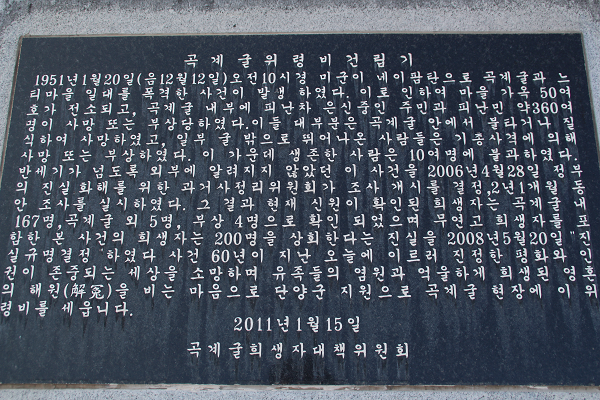 곡계굴위령비건립기
1951년1월20일(음12월12일)오전10시경 미군이 네이팜탄으로 곡계굴과 느
티마을 일대를 폭격한 사건이 발생 하였다.이로 인하여 마을 가옥 50여
호가 전소되고, 곡계굴 내부에 피난차 은신중인 주민과 피난민 약360여
명이 사망 또는 부상당하였다.이들 대부분은 곡계굴 안에서 불타거나 질
식하여 사망하였고,일부 굴 밖으로 뛰어나온 사람들은 기총사격에 의해
사망 또는 부상하였다. 이 가운데 생존한 사람은 10여명에 불과하였다.
반세기가 넘도록 외부에 알려지지 않았던 이 사건을 2006년4월28일 정부
의 진실화해를 위한 과거사정리위원회가 조사 개시를 결정,2년1개월 동
안 조사를 실시하였다. 그 결과 현재 신원이 확인된 희생자는 곡계굴 내
167명,곡계굴 외 5명, 부상 4명으로 확인 되었으며 무연고 희생자를 포
함한 본 사건의 희생자는 200명을 상회한다는 진실을 2008년5월20일 "진
실규명결정"하였다 사건 60년이 지난 오늘에 이르러 진정한 평화와 인
권이 존중되는 세상을 소망하며 유족들의 염원과 억울하게 희생된 영혼
의 해원(解冤)을 비는 마음으로 단양군 지원으로 곡계굴 현장에 이 위
령비를 세웁니다.
2011년1월15일
곡계굴희생자대책위원회